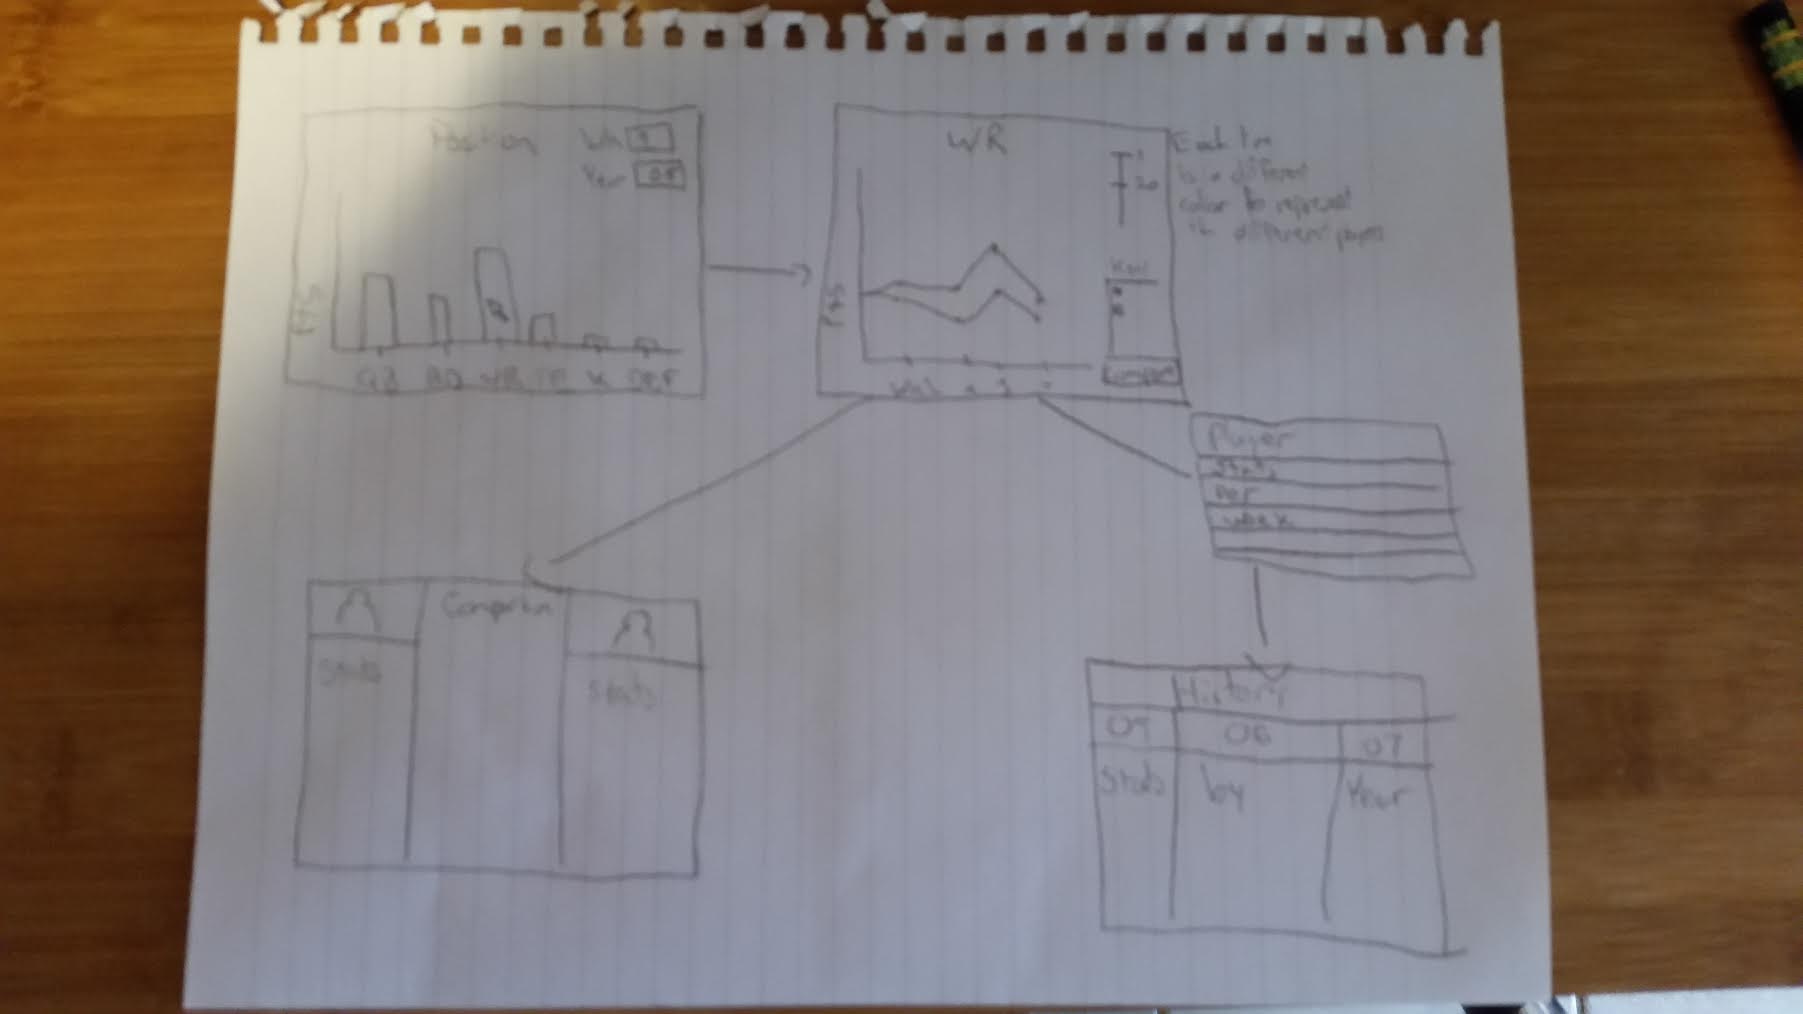 Position
Wk 9
Year
PTS
QB WR TE K DEF
WR
1
20
PTS
Compare
Each line
is a different
color to represent
different
Player
Stats
Per
week
Comparison
Stats
Stats
History
05 06 07
Stats by Year